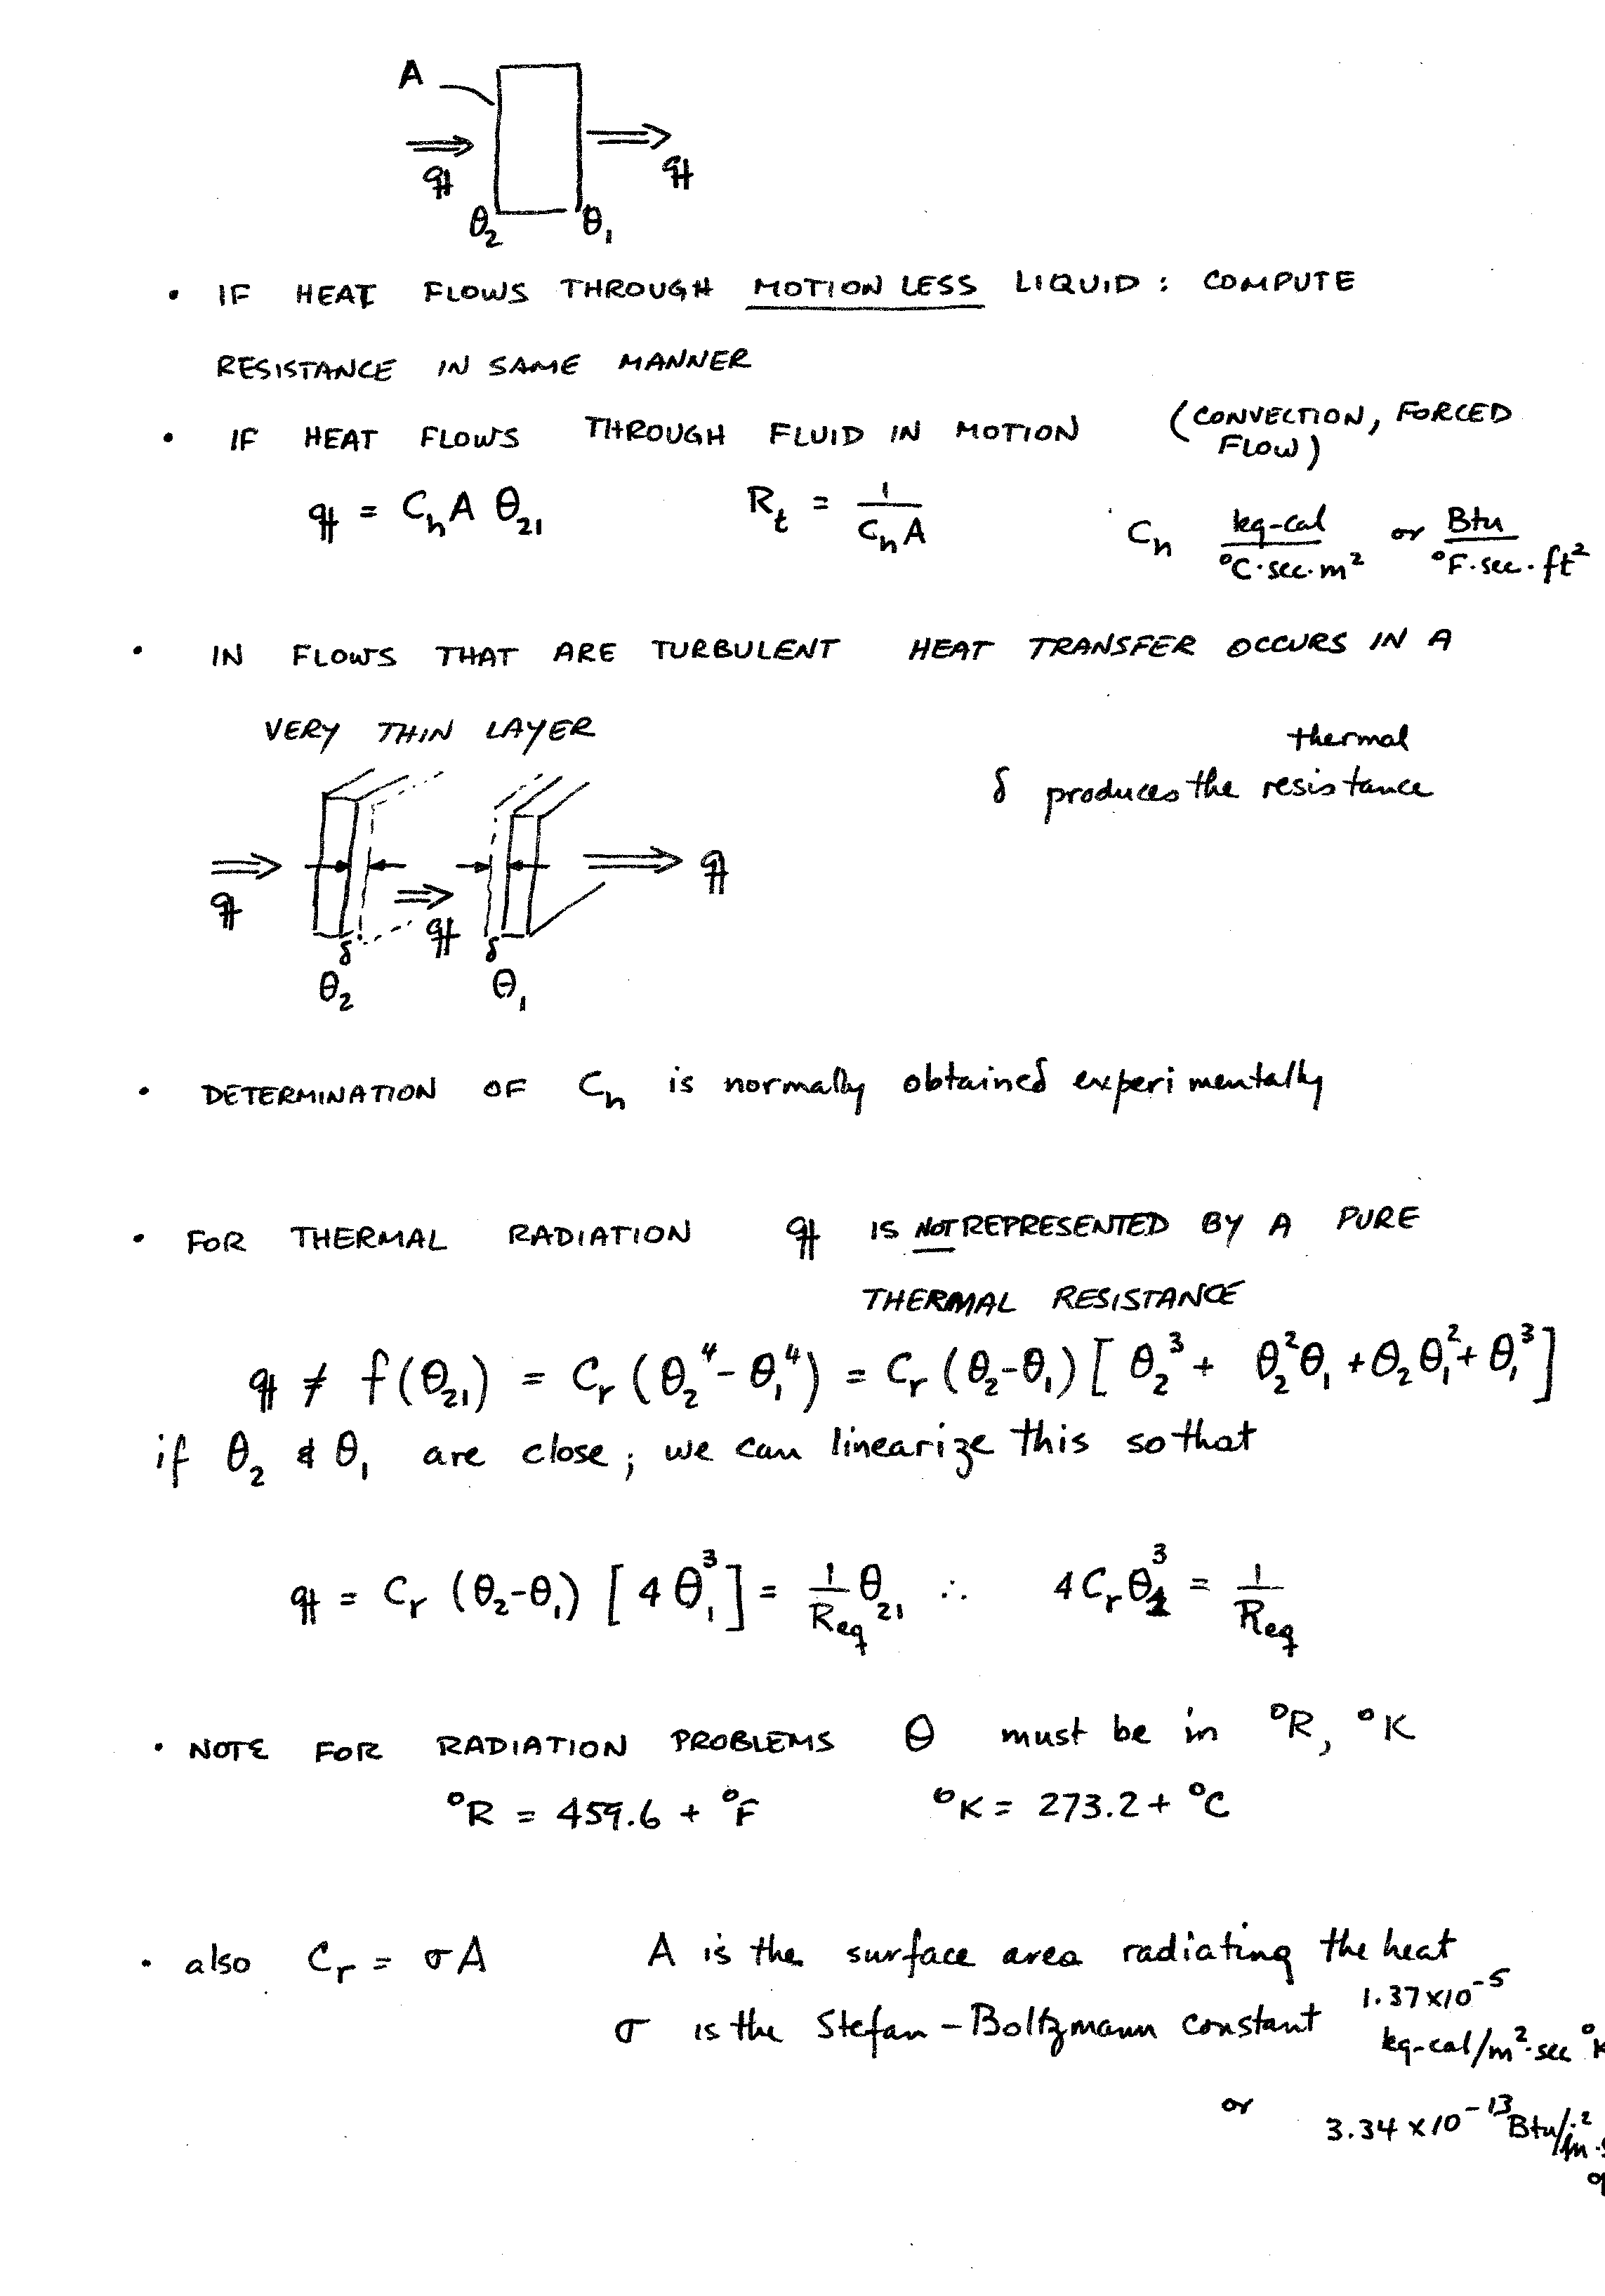 A
q_H q_H
θ₂ θ₁
• IF HEAT FLOWS THROUGH MOTIONLESS LIQUID : COMPUTE
RESISTANCE IN SAME MANNER
• IF HEAT FLOWS THROUGH FLUID IN MOTION (CONVECTION, FORCED
FLOW)
q_H = C_h A θ₂₁ R_t = 1/(C_h A) C_h kg-cal/(°C·sec·m²) or Btu/(°F·sec·ft²)
• IN FLOWS THAT ARE TURBULENT HEAT TRANSFER OCCURS IN A
VERY THIN LAYER
thermal
δ produces the resistance
q_H q_H q_H
δ δ
θ₂ θ₁
• DETERMINATION OF C_h is normally obtained experimentally
• FOR THERMAL RADIATION q_H IS NOT REPRESENTED BY A PURE
THERMAL RESISTANCE
q_H ≠ f(θ₂₁) = C_r (θ₂⁴ - θ₁⁴) = C_r (θ₂-θ₁) [θ₂³ + θ₂²θ₁ + θ₂θ₁² + θ₁³]
if θ₂ & θ₁ are close ; we can linearize this so that
q_H = C_r (θ₂-θ₁) [4θ₁³] = 1/R_eq θ₂₁ ∴ 4C_rθ₁³ = 1/R_eq
• NOTE FOR RADIATION PROBLEMS θ must be in °R, °K
°R = 459.6 + °F °K = 273.2 + °C
• also C_r = σA A is the surface area radiating the heat
σ is the Stefan-Boltzmann constant 1.37×10⁻⁵
kg-cal/m²·sec °K
or 3.34 × 10⁻¹³ Btu/in²·s